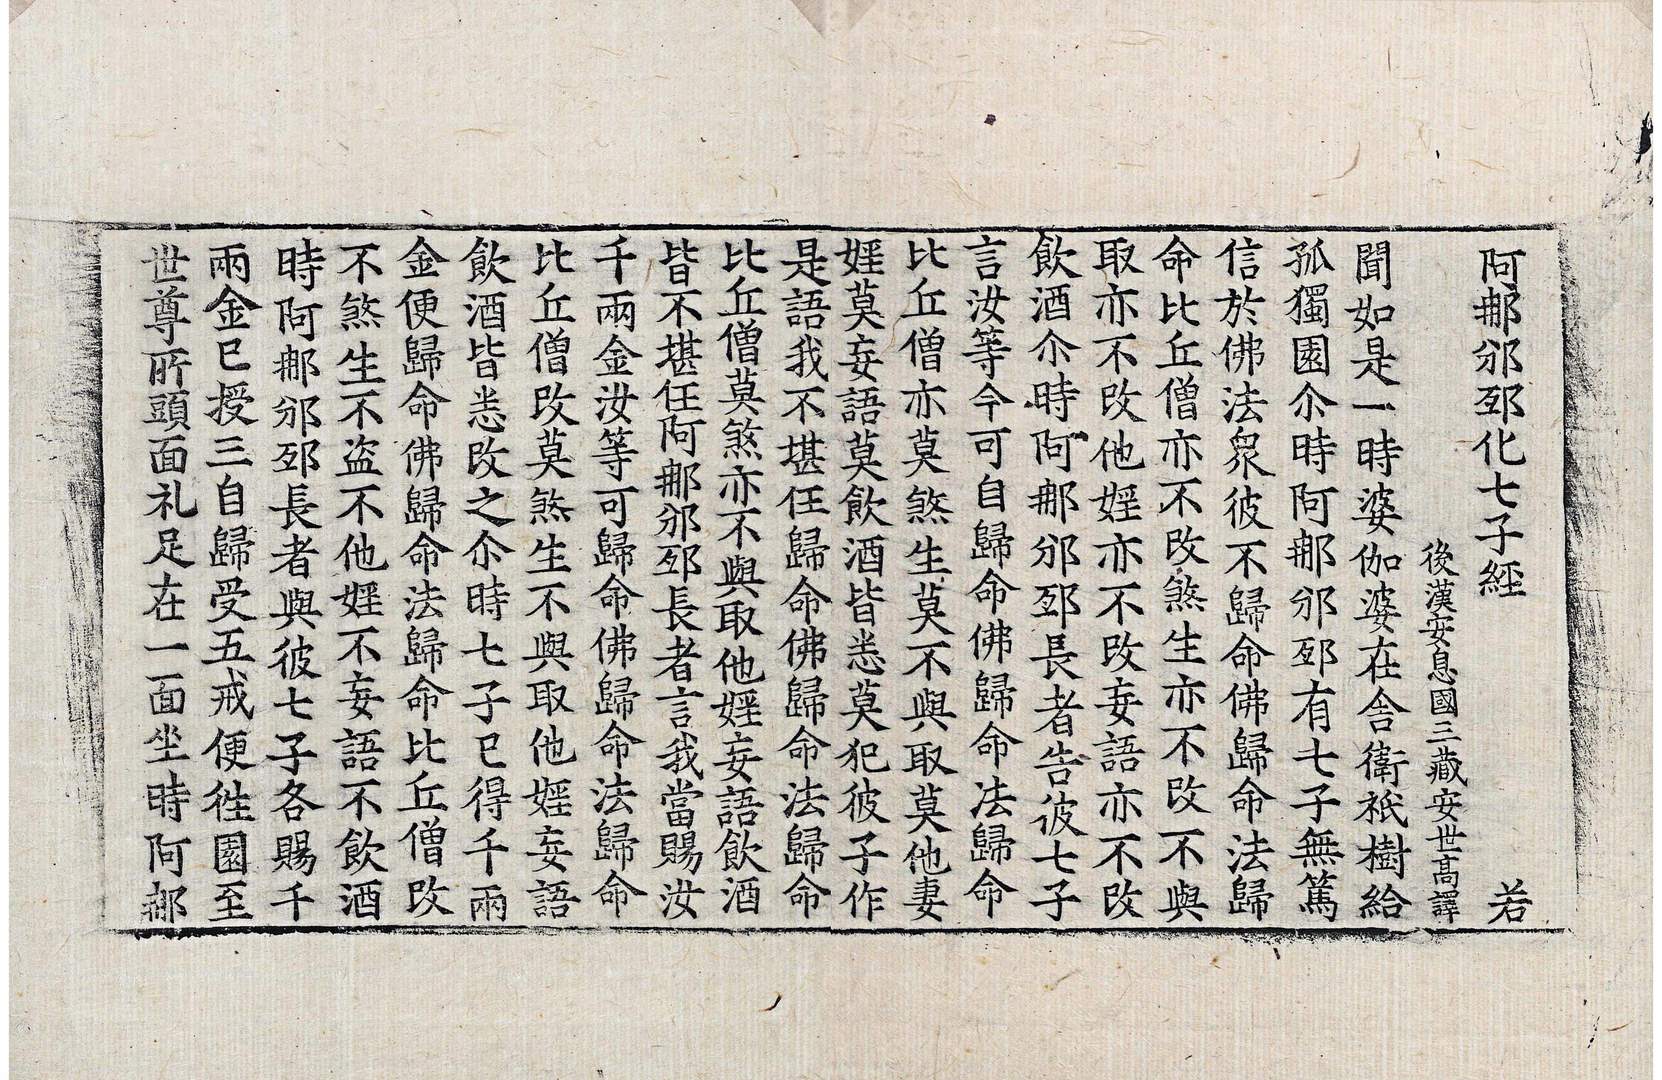 阿𨙻邠邳化七子經 若
後漢安息國三藏安世高譯
聞如是一時婆伽婆在舍衛祇樹給
孤獨園尒時阿𨙻邠邳有七子無篤
信於佛法衆彼不歸命佛歸命法歸
命比丘僧亦不改煞生亦不改不與
取亦不改他婬亦不改妄語亦不改
飲酒尒時阿𨙻邠邳長者告彼七子
言汝等今可自歸命佛歸命法歸命
比丘僧亦莫煞生莫不與取莫他妻
婬莫妄語莫飲酒皆悉莫犯彼子作
是語我不堪任歸命佛歸命法歸命
比丘僧莫煞亦不與取他婬妄語飲酒
皆不堪任阿𨙻邠邳長者言我當賜汝
千兩金汝等可歸命佛歸命法歸命
比丘僧改莫煞生不與取他婬妄語
飲酒皆悉改之尒時七子已得千兩
金便歸命佛歸命法歸命比丘僧改
不煞生不盗不他婬不妄語不飲酒
時阿𨙻邠邳長者與彼七子各賜千
兩金已授三自歸受五戒便徃園至
世尊所頭面礼足在一面坐時阿𨙻